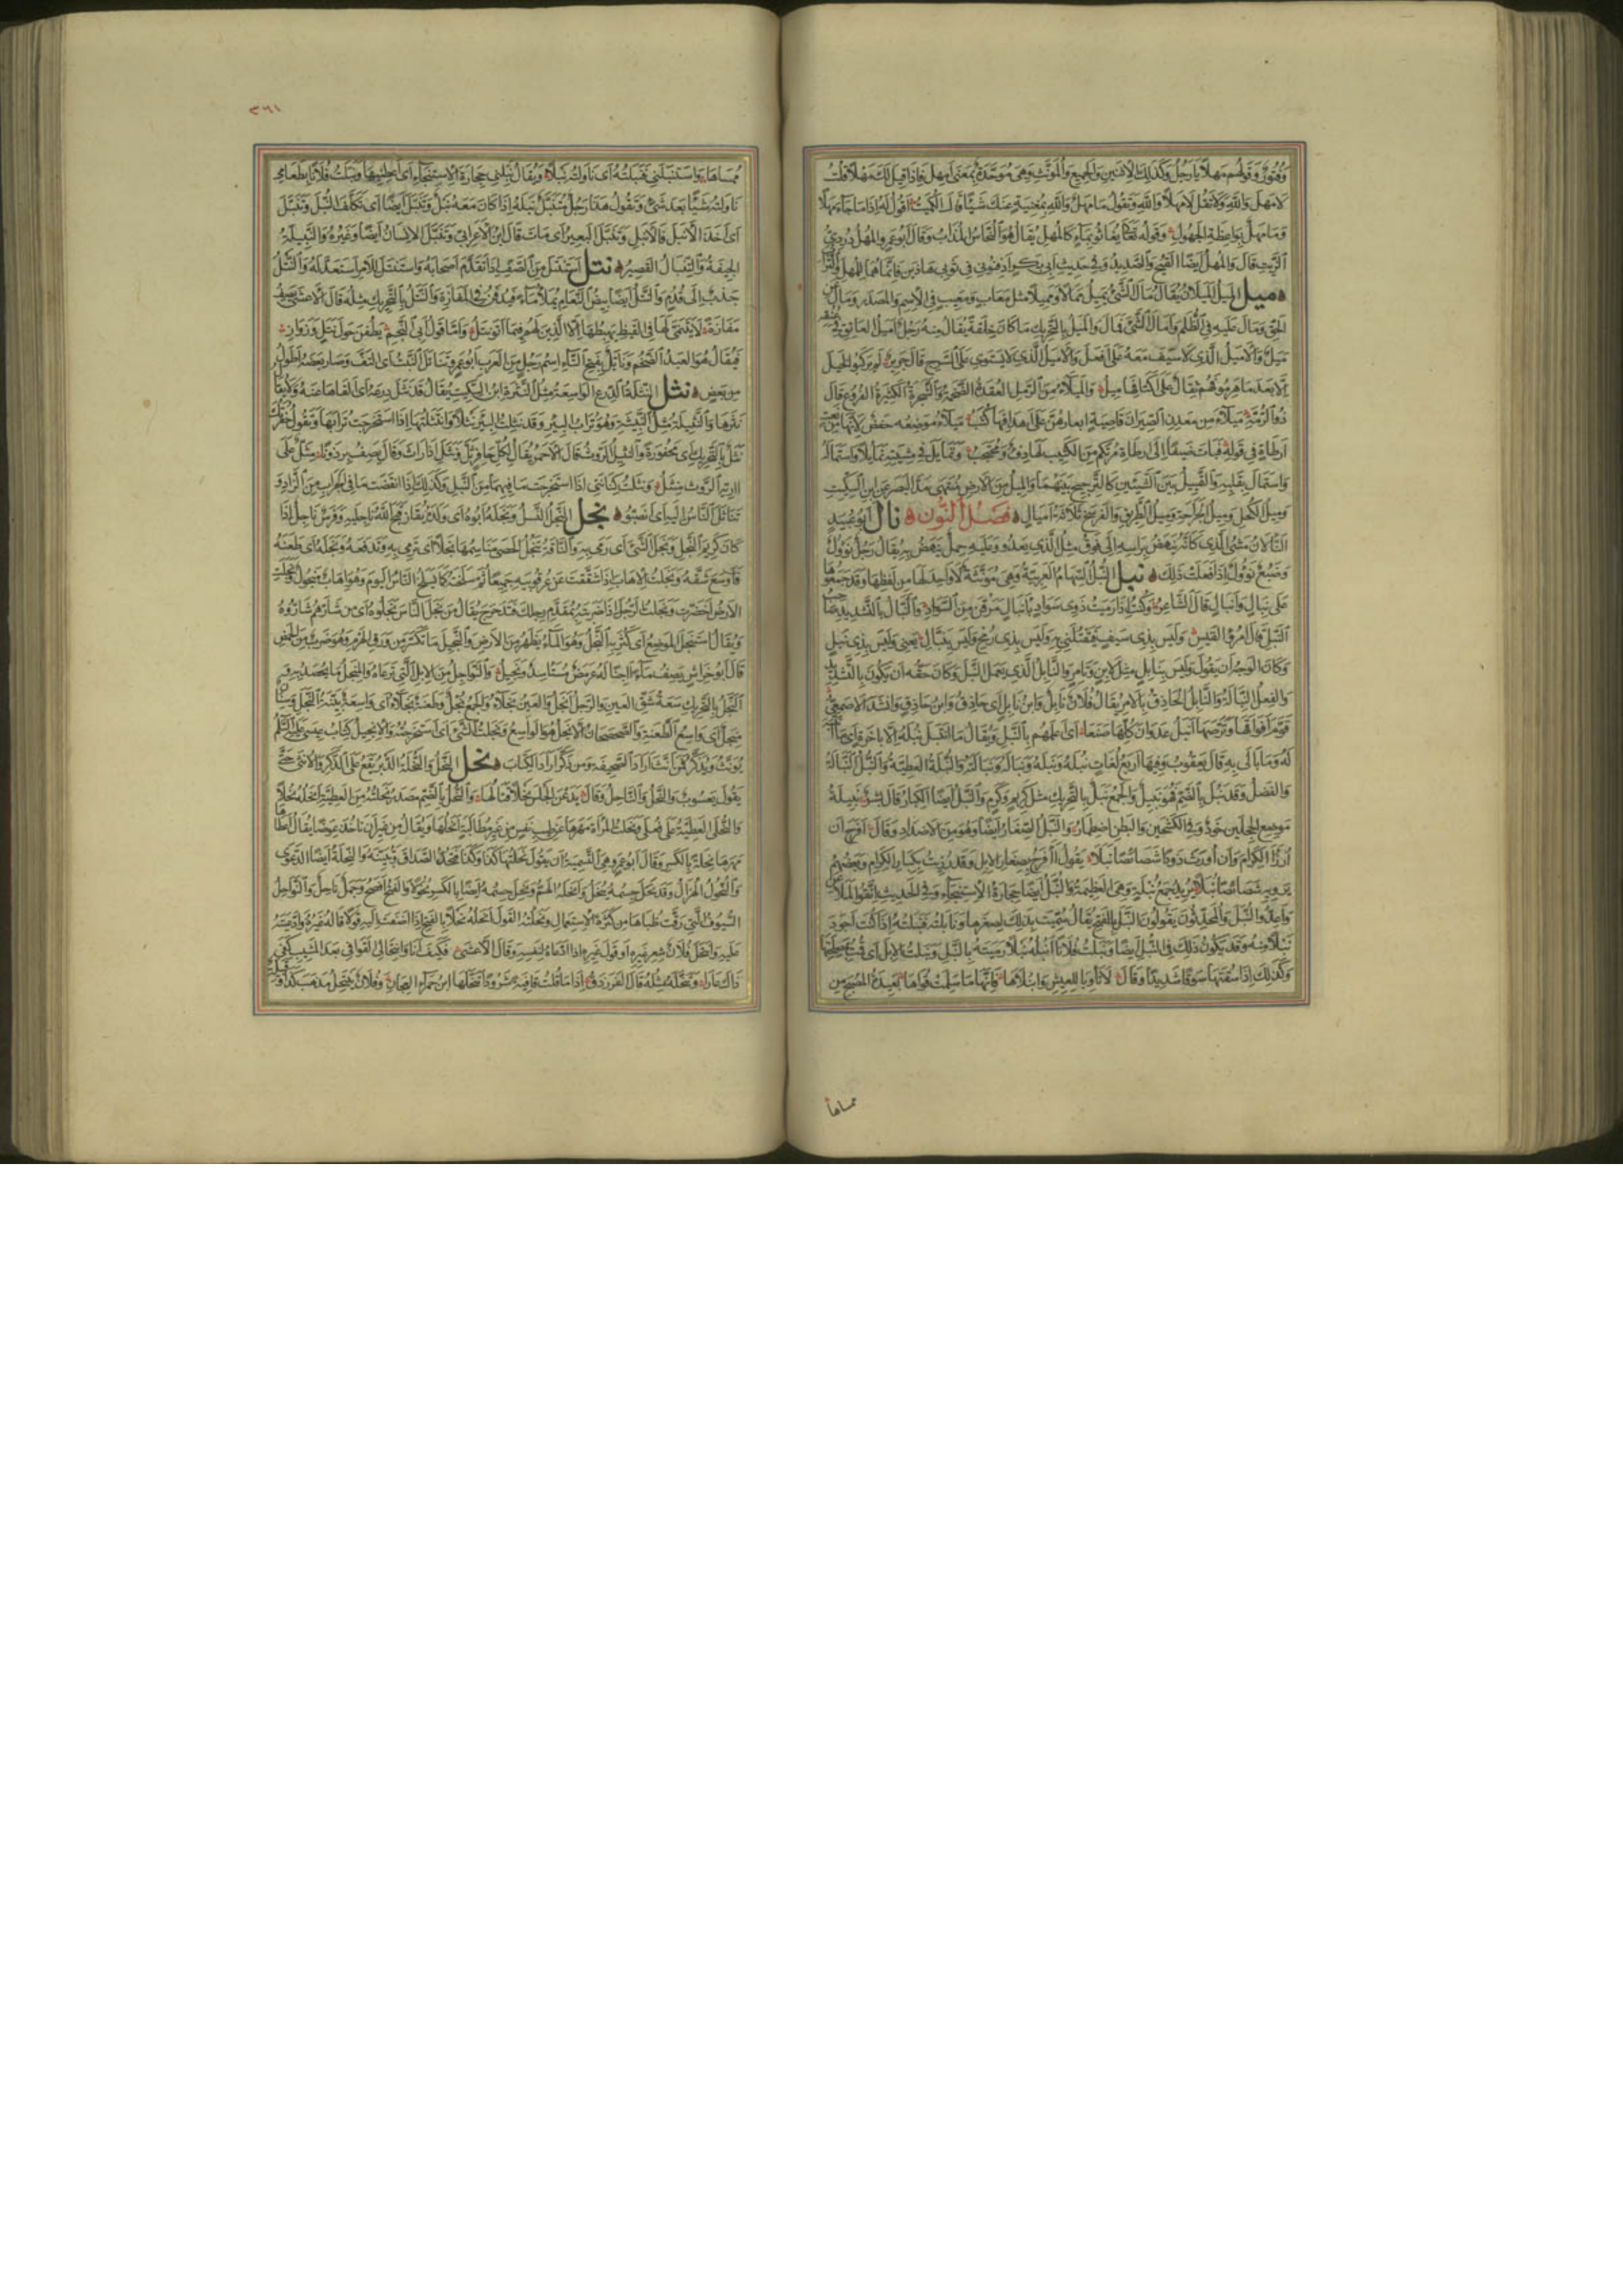 وَفُتُورٌ وَقَوْلُهُم مَهلًا يَا رَجُلُ وَكَذلِكَ لِلاثنَينِ وَالجَمِيعِ وَالمؤنَّثِ وَهِىَ مُوَحَّدَةٌ بِمَعنى اَمهِل فَاِذَا قِيلَ لَكَ مَهلًا قُلتَ
لَا مَهلَ وَاللهِ وَلَا تَقُل لَا مَهلًا وَاللهِ وَتَقُولُ مَا مَهلٌ وَاللهِ بِمُغنِيَةٍ عَنكَ شَيئًا قَالَ الكُمَيتُ اَقُولُ لَهُ اِذَا مَا جَاءَ مَهلًا
وَمَا مَهلٌ بِوَاعِظَةِ الجَهُولِ وَقَولُهُ تعَالى يُغَاثُوا بِمَاءٍ كَالمُهلِ يُقَالُ هُوَ النُّحَاسُ المُذَابُ وَقَالَ اَبُو عَمرٍو المُهلُ دُردِىُّ
الزَّيتِ قَالَ وَالمُهلُ اَيضًا القَيحُ وَالصَّدِيدُ وَفِى حَدِيثِ اَبِى بَكرٍ اِدفِنُونِى فِى ثَوبَىَّ هَاذَينِ فَاِنَّمَا هُمَا لِلمُهلِ وَالتُّرَابِ
ميل المَيلُ المَيَلَانُ يُقَالُ مَالَ الشَّىءُ يَمِيلُ مَمَالًا وَمَمِيلًا مِثلُ مَعَابٍ وَمَعِيبٍ فِى الاِسمِ وَالمَصدَرِ وَمَالَ عَنِ
الحَقِّ وَمَالَ عَلَيهِ فِى الظُّلمِ وَاَمَالَ الشَّىءَ فَمَالَ وَالمَيَلُ بِالتَّحرِيكِ مَا كَانَ خِلقَةً يُقَالُ مِنهُ رَجُلٌ اَميَلُ العَاتِقِ فِى عُنُقِهِ
مَيَلٌ وَالاَميَلُ الَّذِى لَا سَيفَ مَعَهُ عَلَى اَفعَل وَالاَميَلُ الَّذِى لَا يَستَوِى عَلَى السَّرجِ قَالَ جَرِيرٌ لَم يَركَبُوا الخَيلَ
اِلَّا بَعدَ مَا هَرِمُوا فَهُم ثِقَالٌ عَلَى اَكتَافِهَا مِيلُ وَالمَيلَاءُ مِنَ الرَّملِ العُقدَةُ الضَّخمَةُ وَالشَّجَرَةُ الكَثِيرَةُ الفُرُوعِ قَالَ
ذُو الرُّمَّةِ مَيلَاءَ مِن مَعدِنِ الصِّيرَانِ قَاصِيَةٍ اَبعَارُهُنَّ عَلَى اَهدَافِهَا كُثَبُ مَيلَاءَ مَوضِعُه خَفضٌ لِاَنَّهَا مِن نَعتِ
اَرطَاةٍ فِى قَولِهِ فَبَاتَ ضَيفًا اِلَى اَرطَاةِ مُرتَكِمٍ مِنَ الكَثِيبِ لَهَا دِفءٌ وَمُحتَجَبُ وَتَمَايَلَ فِى مِشيَتِهِ تَمَايُلًا وَاستَمَالَهُ
وَاستَمَالَ بِقَلبِهِ وَالتَّميِيلُ بَينَ الشَّيئَينِ كَالتَّرجِيحِ بَينَهُمَا وَالمِيلُ مِنَ الاَرضِ مُنتَهَى مَدِّ البَصَرِ عَنِ ابنِ السِّكِّيتِ
وَمِيلُ الكُحلِ وَمِيلُ الجَرَّاحَةِ وَمِيلُ الطَّرِيقِ وَالفَرسَخُ ثَلَاثَةُ اَميَالٍ فَصلُ النُّون نال اَبُو عُبَيدٍ
النَّأَلَانُ مَشىُ الَّذِى كَاَنَّهُ يَنهَضُ بِرَاسِهِ اِلَى فَوقُ مِثلُ الَّذِى يَعدُو وَعَلَيهِ حِملٌ يَنهَضُ بِهِ يُقَالُ رَجُلٌ نَؤُولٌ
وَضَبُعٌ نَؤُولٌ اِذَا فَعَلَت ذَلِكَ نبل النَّبلُ السِّهَامُ العَرَبِيَّةُ وَهِىَ مُؤَنَّثَةٌ لَا وَاحِدَ لَهَا مِن لَفظِهَا وَقَد جَمَعُوهَا
عَلَى نِبَالٍ وَاَنبَالٍ قَالَ الشَّاعِرُ وَكُنتُ اِذَا رَمَيتُ ذَوِى سَوَادٍ بِاَنبَالٍ مَرَقنَ مِنَ السَّوَادِ وَالنَّبَّالُ بِالتَّشدِيدِ صَاحِبُ
النَّبلِ قَالَ امرُؤُ القَيسِ وَلَيسَ بِذِى سَيفٍ فَيَقتُلَنِى بِهِ وَلَيسَ بِذِى رُمحٍ وَلَيسَ بِنَبَّالِ يَعنِى وَلَيسَ بِذِى نَبلٍ
وَكَانَ الوَجهُ اَن يَقُولَ وَلَيسَ بِنَابِلٍ مِثلَ لَابِنٍ وَتَامِرٍ وَالنَّابِلُ الَّذِى يَعمَلُ النَّبلَ وَكَانَ حَقُّهُ اَن يَكُونَ بِالتَّشدِيدِ
وَالفِعلُ النِّبَالَةُ وَالنَّابِلُ الحَاذِقُ بِالاَمرِ يُقَالُ فُلَانٌ نَابِلٌ وَابنُ نَابِلٍ اَى حَاذِقٌ وَابنُ حَاذِقٍ وَانشَدَ الاَصمَعِىُّ
لَهُ وَمَا بَالَى بِهِ قَالَ يَعقُوبُ وَفِيهَا اَربَعُ لُغَاتٍ نُبلَهُ وَنَبلَهُ وَنَبَالَهُ وَنَبَالَتَهُ وَالنُّبلَةُ العَطِيَّةُ وَالنُّبلُ النَّبَالَةُ
وَالفَضلُ وَقَد نَبُلَ بِالضَّمِّ فَهُوَ نَبِيلٌ وَالجَمعُ نَبَلٌ بِالتَّحرِيكِ مِثلُ كَرِيمٍ وَكَرَمٍ وَالنَّبَلُ اَيضًا الكِبَارُ قَالَ بِشرٌ نَبِيلَةُ
مَوضِعِ الحِجلَينِ خَودٌ وَفِى الكَشحَينِ وَالبَطنِ اضطِمَارُ وَالنَّبَلُ الصِّغَارُ اَيضًا وَهُوَ مِنَ الاَضدَادِ وَقَالَ اَفرَحُ اَن
اُرزَأَ الكِرَامَ وَاَن اُورَثَ ذَودًا شَصَائِصًا نَبَلَا يَقُولُ اَاَفرَحُ بِصِغَارِ الاِبِلِ وَقَد رُزِئتُ بِكِبَارِ الكِرَامِ وَبَعضُهُم
يَروِيهِ شَصَائِصًا نُبَلًا يُرِيدُ جَمعَ نُبلَةٍ وَهِىَ العَظِيمَةُ وَالنُّبَلُ اَيضًا حِجَارَةُ الاِستِنجَاءِ وَفِى الحَدِيثِ اتَّقُوا المَلَاعِنَ
وَاَعِدُّوا النُّبَلَ وَالمُحَدِّثُونَ يَقُولُونَ النَّبَلَ بِالفَتحِ يُقَالُ سُمِّيَت بِذَلِكَ لِصِغَرِهَا وَنَابَلتُهُ فَنَبَلتُهُ اِذَا كُنتَ اَجوَدَ
نَبلًا مِنهُ وَقَد يَكُونُ ذَلِكَ فِى النُّبلِ اَيضًا وَنَبَلتُ فُلَانًا اَنبُلُهُ نَبلًا رَمَيتَهُ بِالنَّبلِ وَنَبَلتُ الاِبِلَ اَى قُمتُ بِمَصلَحَتِهَا
وَكَذَلِكَ اِذَا سُقتَهَا سَوقًا شَدِيدًا وَقَالَ لَا تَأوِيَا لِلعِيسِ وَانبُلَاهَا فَاِنَّهَا مَا سَلِمَت قُوَاهَا بَعِيدَةُ المُصبَحِ مِن
ممساها
٣٦١
مُمسَاهَا وَاستَنبَلَنِى فَنَبَلتُهُ اَى نَاوَلتُهُ نَبلًا وَيُقَالُ نَبِّلنِى حِجَارَةَ الاِستِنجَاءِ اَى اَعطِنِيهَا وَنَبَلتُ فُلَانًا بِطَعَامٍ
نَاوَلتُهُ شَيئًا بَعدَ شَىءٍ وَتَقُولُ هَذَا رَجُلٌ مُتَنَبِّلٌ نَبلَهُ اِذَا كَانَ مَعَهُ نَبلٌ وَتَنَبَّلَ اَيضًا اَى تَكَلَّفَ النُّبلَ وَتَنَبَّلَ
اَى اَخَذَ الاَنبَلَ فَالاَنبَلَ وَتَنَبَّلَ البَعِيرُ اَى مَاتَ قَالَ ابنُ الاَعرَابِىِّ وَتَنَبَّلَ الاِنسَانُ اَيضًا وَغَيرُهُ وَالنَّبِيلَةُ
الجِيفَةُ وَالتِّنبَالُ القَصِيرُ نتل اِستَنتَلَ مِنَ الصَّفِّ اِذَا تَقَدَّمَ اَصحَابَهُ وَاستَنتَلَ لِلاَمرِ استَعَدَّ لَهُ وَالنَّتلُ
جَذبٌ اِلَى قُدُمٍ وَالنَّتلُ اَيضًا بَيضُ النَّعَامِ يُملَأُ مَاءً فَيُدفَنُ فِى المَفَازَةِ وَالنَّتَلُ بِالتَّحرِيكِ مِثلُهُ قَالَ الاَعشَى يَصِفُ
مَفَازَةً لَا يَتَنَمَّى لَهَا فِى القَيظِ يَهبِطُهَا اِلَّا الَّذِينَ لَهُم فِيمَا اَتَوا نَتَلُ وَاَمَّا قَولُ اَبِى النَّجمِ يَطُفنَ حَولَ نَتَلٍ وَزوَازِ
فَيُقَالُ هُوَ العَبدُ الضَّخمُ وَنَاتَلُ بِفَتحِ التَّاءِ اِسمُ رَجُلٍ مِنَ العَرَبِ اَبُو عَمرٍو تَنَاتَلَ النَّبتُ اَى التَفَّ وَصَارَ بَعضُهُ اَطوَلَ
مِن بَعضٍ نثل النَّثلَةُ الدِّرعُ الوَاسِعَةُ مِثلُ النَّثرَةِ ابنُ السِّكِّيتِ يُقَالُ قَد نَثَلَ دِرعَهُ اَى اَلقَاهَا عَنهُ وَلَا يُقَالُ
نَثَرَهَا وَالنَّثِيلَةُ مِثلُ النَّبِيثَةِ وَهُوَ تُرَابُ البِئرِ وَقَد نَثَلتُ البِئرَ نَثلًا وَانتَثَلتُهَا اِذَا استَخرَجتَ تُرَابَهَا وَتَقُولُ حُفرَتُكَ
نَثَلٌ بِالتَّحرِيكِ اَى مَحفُورَةٌ وَالنَّثِيلُ الرَّوثُ قَالَ الاَحمَرُ يُقَالُ لِكُلِّ حَافِرٍ ثَلَّ وَنَثَلَ اِذَا رَاثَ وَقَالَ يَصِفُ بِرذَونًا مِثَلٌّ عَلَى
اٰرِيِّهِ الرَّوثُ مِنثَلُ وَنَثَلتُ كِنَانَتِى اِذَا استَخرَجتَ مَا فِيهَا مِنَ النَّبلِ وَكَذَلِكَ اِذَا انفَضتَ مَا فِى الجِرَابِ مِنَ الزَّادِ وَ
تَنَاثَلَ النَّاسُ اِلَيهِ اَى انصَبُّوا نجل النَّجلُ النَّسلُ وَنَجَلَهُ اَبُوهُ اَى وَلَدَهُ يُقَالُ قَبَّحَ اللهُ نَاجِلَيهِ وَفَرَسٌ نَاجِلٌ اِذَا
كَانَ كَرِيمَ النَّجلِ وَنَجَلَ الشَّىءَ اَى رَمَى بِهِ وَالنَّاقَةُ تَنجُلُ الحَصَى مَنَاسِمُهَا نَجلًا اَى تَرمِى بِهِ وَتَدفَعُهُ وَنَجَلَهُ اَى طَعَنَهُ
فَاَوسَعَ شَقَّهُ وَنَجَلتُ الاِهَابَ اِذَا شَقَقتَ عَن عُرقُوبَيهِ جَمِيعًا ثُمَّ سَلَختَهُ كَمَا يَسلَخُ النَّاسُ اليَومَ وَهُوَ اِهَابٌ مَنجُولٌ وَنَجَلَتِ
الاَرضُ اخضَرَّت وَنَجَلتُ الرَّجُلَ اِذَا ضَرَبتَهُ بِمُقَدَّمِ رِجلِكَ فَتَدَحرَجَ يُقَالُ مَن نَجَلَ النَّاسَ نَجَلُوهُ اَى مَن شَارَّهُم شَارُّوهُ
وَيُقَالُ استَنجَلَ المَوضِعُ اَى كَثُرَ بِهِ النَّجلُ وَهُوَ المَاءُ يَظهَرُ مِنَ الاَرضِ وَالنَّجِيلُ مَا تَكَسَّرَ مِن وَرَقِ الهَرمِ وَهُوَ ضَربٌ مِنَ الحَمضِ
النَّجَلُ بِالتَّحرِيكِ سَعَةُ شَقِّ العَينِ وَالرَّجُلُ اَنجَلُ وَالعَينُ نَجلَاءُ وَالجَمعُ نُجلٌ وَطَعنَةٌ نَجلَاءُ اَى وَاسِعَةٌ بَيِّنَةُ النَّجَلِ وَسِنَانٌ
مِنجَلٌ اَى وَاسِعُ الطَّعنَةِ وَالصَّحصَحَانُ الاَنجَلُ هُوَ الوَاسِعُ وَنَجَلتُ الشَّىءَ اَى استَخرَجتُهُ وَالاِنجِيلُ كِتَابُ عِيسَى عَلَيهِ السَّلَمُ
يُؤَنَّثُ وَيُذَكَّرُ فَمَن اَنَّثَ اَرَادَ الصَّحِيفَةَ وَمَن ذَكَّرَ اَرَادَ الكِتَابَ نحل النَّحلُ وَالنَّحلَةُ الدَّبرُ يَقَعُ عَلَى الذَّكَرِ وَالاُنثَى حَتَّى
يَقُولَ يَعسُوبٌ وَالنَّحلُ وَالنَّاحِلُ وَقَالَ يَدَعنَ الجَلسَ نَحلًا قَتَالُهَا وَالنُّحلُ بِالضَّمِّ مَصدَرُ نَحَلتُهُ مِنَ العَطِيَّةِ اَنحَلُهُ نُحلًا
وَالنُّحلَى العَطِيَّةُ عَلَى فُعلَى وَنَحَلتُ المَراَةَ مَهرَهَا عَن طِيبِ نَفسٍ مِن غَيرِ مُطَالَبَةٍ اَنحَلُهَا وَيُقَالُ مِن غَيرِ اَن تَاخُذَ عِوَضًا يُقَالُ اَعطَاهَا
مَهرَهَا نِحلَةً بِالكَسرِ وَقَالَ اَبُو عَمرٍو هِىَ التَّسمِيَةُ اَن يَقُولَ نَحَلتُهَا كَذَا وَكَذَا فَيَحُدُّ الصَّدَاقَ وَيُبَيِّنَهُ وَالنِّحلَةُ اَيضًا الدَّعوَى
وَالنُّحُولُ الهُزَالُ وَقَد نَحَلَ جِسمُهُ يَنحَلُ وَاَنحَلَهُ الهَمُّ وَنَحِلَ جِسمُهُ اَيضًا بِالكَسرِ نُحُولًا وَالفَتحُ اَفصَحُ وَجَمَلٌ نَاحِلٌ وَالنَّوَاحِلُ
السُّيُوفُ الَّتِى رَقَّت ظُبَاهَا مِن كَثرَةِ الاِستِعمَالِ وَنَحَلتُهُ القَولَ اَنحَلُهُ نَحلًا بِالفَتحِ اِذَا اَضَفتَ اِلَيهِ قَولًا قَالَهُ غَيرُهُ وَادَّعَيتَهُ
عَلَيهِ وَانتَحَلَ فُلَانٌ شِعرَ غَيرِهِ اَو قَولَ غَيرِهِ اِذَا ادَّعَاهُ لِنَفسِهِ وَقَالَ الاَعشَى فَكَيفَ اَنَا وَانتِحَالِى القَوَافِى بَعدَ المَشِيبِ كَفَى
ذَاكَ عَارَا وَتَنَحَّلَهُ مِثلُهُ قَالَ الفَرَزدَقُ اِذَا مَا قُلتُ قَافِيَةً شَرُودًا تَنَحَّلَهَا ابنُ حَمرَاءِ العِجَانِ وَفُلَانٌ يَنتَحِلُ مَذهَبَ كَذَا وَ